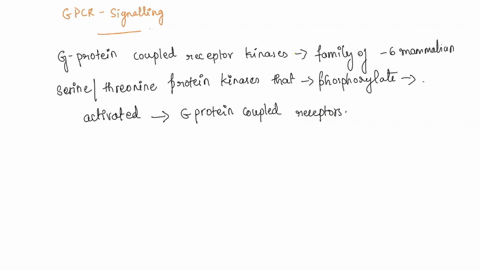 GPCR - Signalling
G-protein coupled receptor kinases → family of -6 mammalian
serine/ threonine protein kinases that → phosphorylate →.
activated → G protein coupled receptors.